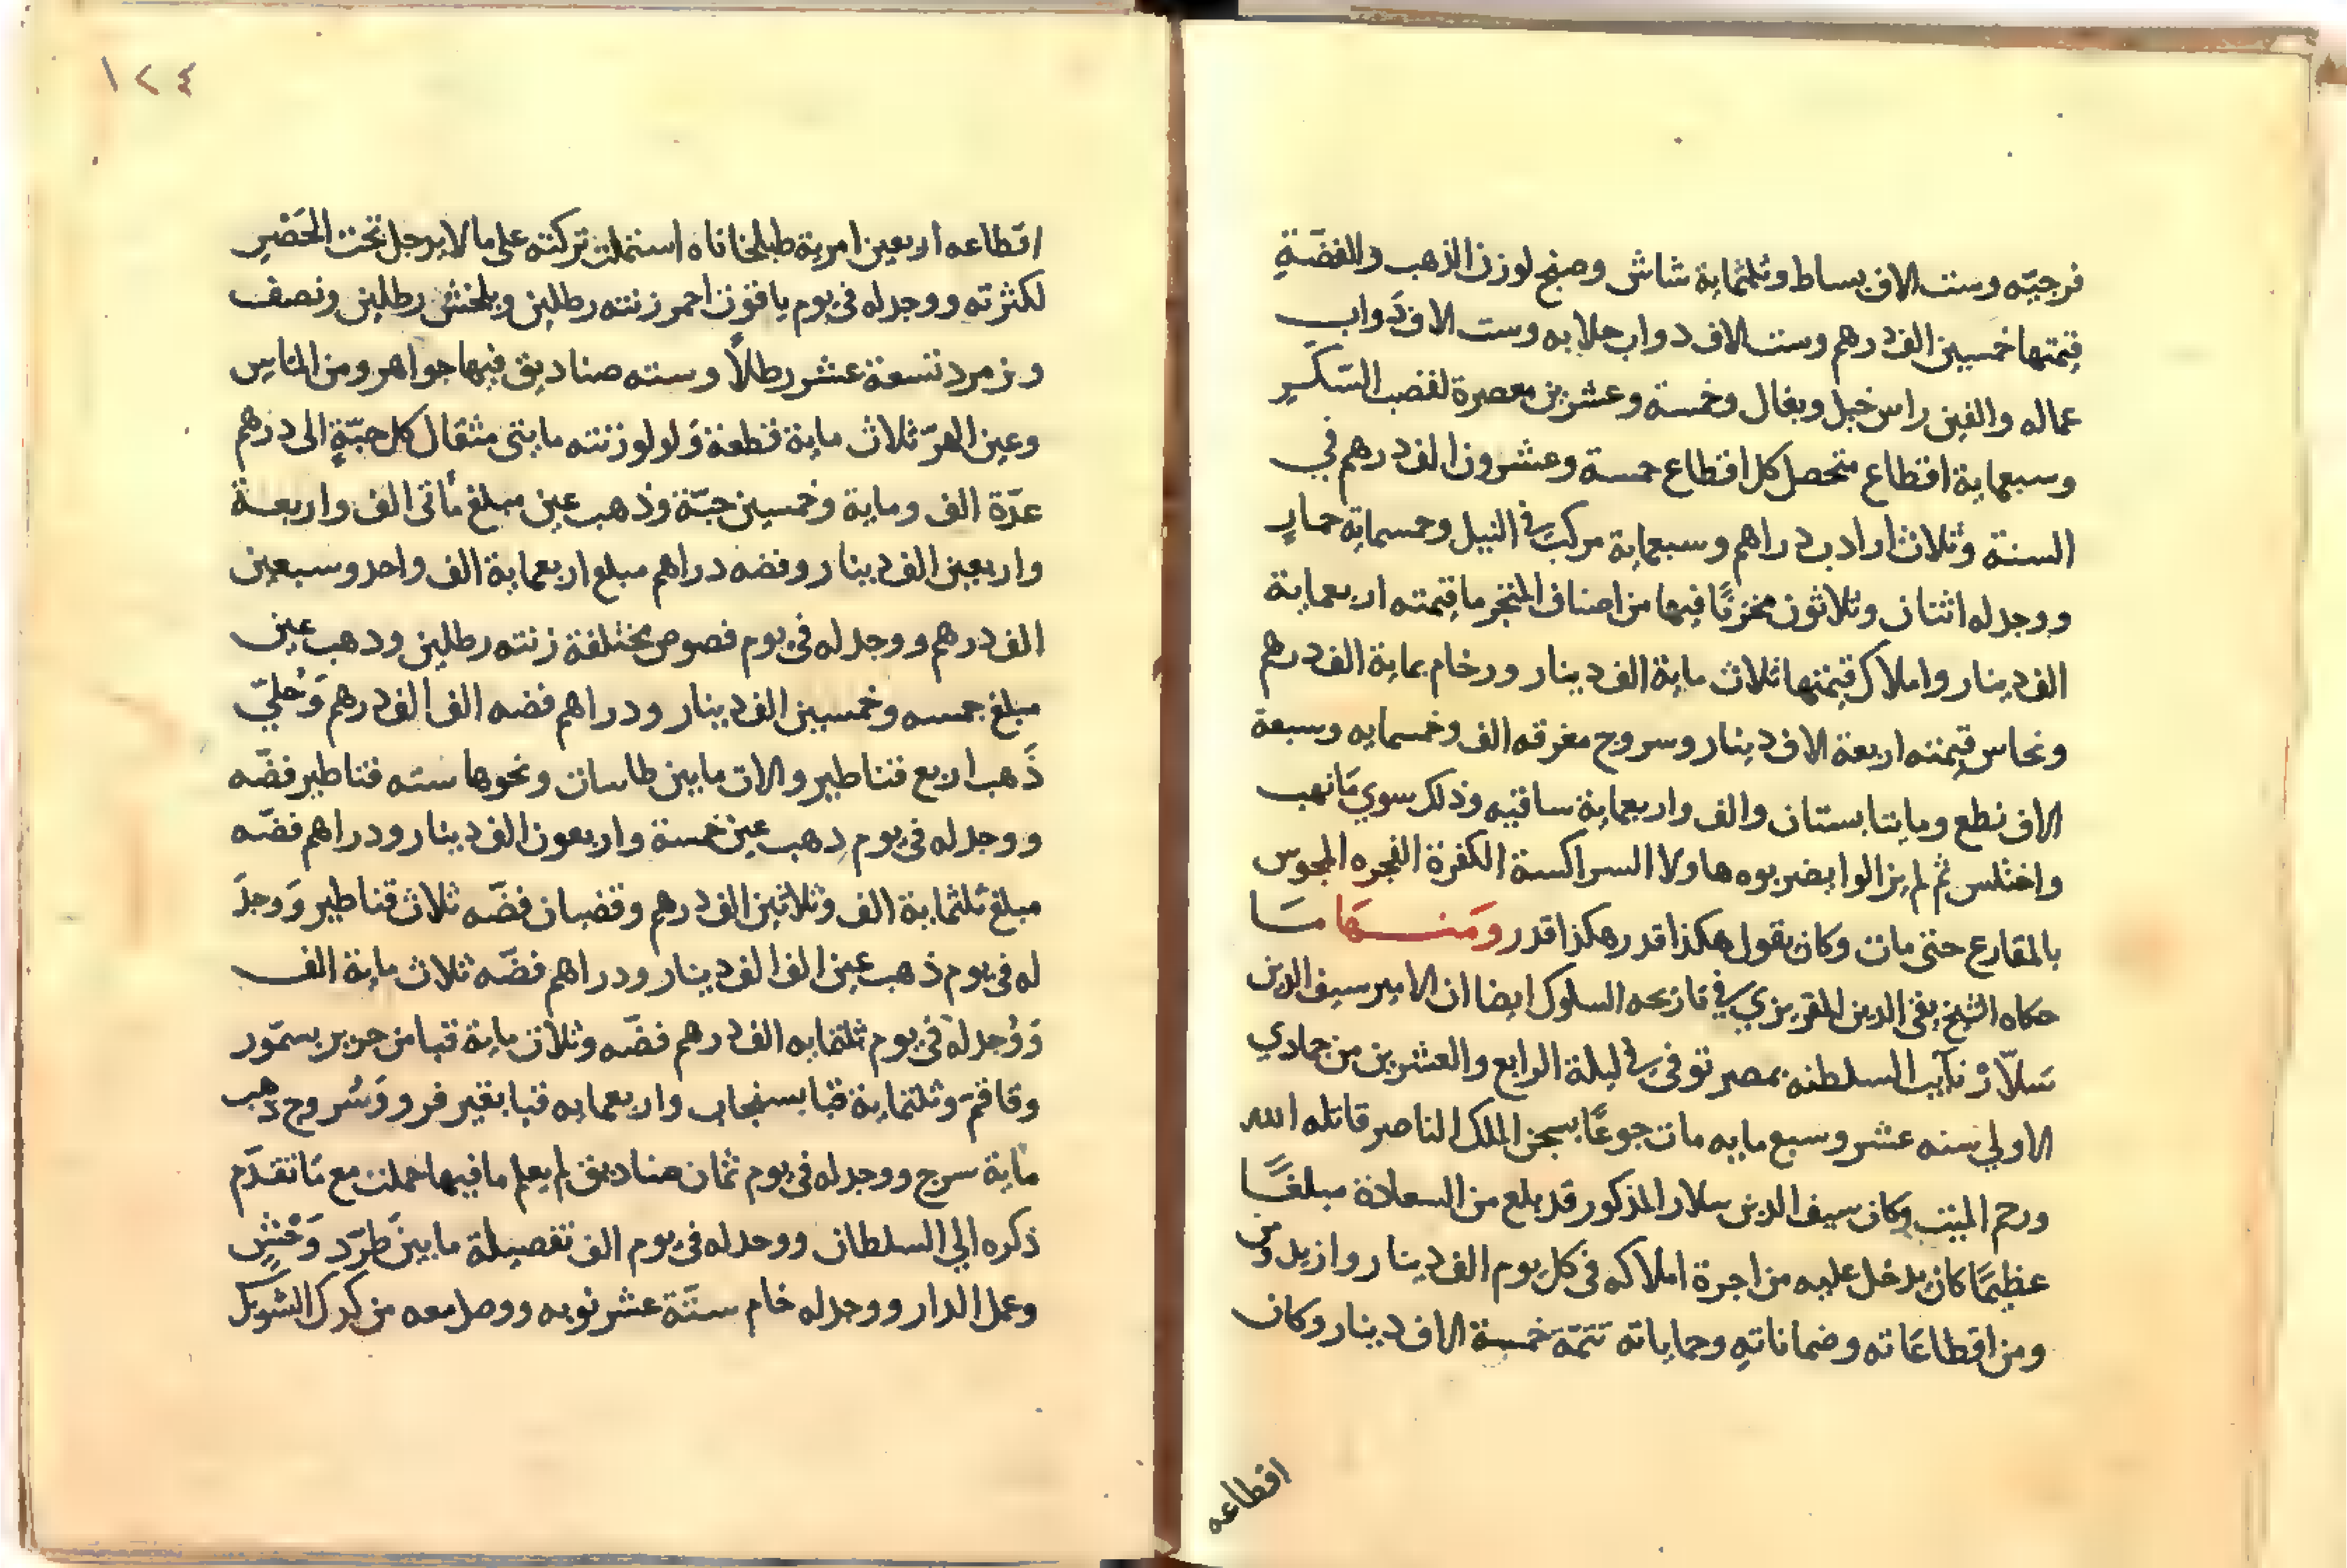 فرجيّه وست الاف بساط وثلثماية شاش وصنج لوزن الذهب والفضّةِ
قيمتها خمسين الف درهم وست الاف دواب حلابه وست الاف دَواب
عماله والفين راس خيل وبغال وخمسة وعشرين معصرة لقصب السّكرِ
وسبعماية اقطاع متحصل كل اقطاع خمسة وعشرون الف درهم في
السنة وثلاث ارادب دراهم وسبعماية مركب في النيل وخمسماية حمارٍ
ووجد له اثنان وثلاثون مخزنًا فيها من اصناف المتجر ما قيمته اربعماية
الف دينار واملاك قيمتها ثلاث ماية الف دينار ورخام بماية الف درهم
ونحاس قيمته اربعة الاف دينار وسروج مغرقه الف وخمسمايه وسبعة
الاف نطع ومايتا بستان والف واربعماية ساقيه وذلك سوي مَا نهب
واختلس ثم لم يزالوا يضربوه هاولا السراكسة الكفرة الفجره المجوس
بالمقارع حتى مات وكان يقول هكذا قدر هكذا قدر ومَنـهَا مـَا
حكاه الشيخ تقي الدين المقريزي في تاريخه السلوك ايضا ان الامير سيف الدين
سَلاّرْ نآيب السلطنه بمصر توفى في ليلة الرابع والعشرين من جمادي
الاولي سنه عشر وسبع مايه مات جوعًا بسجن الملك الناصر قاتله الله
ورحم الميت وكان سيف الدين سلار المذكور قد بلغ من السعادة مبلغـًا
عظيمًا كان يدخل عليه من اجرة املاكه في كل يوم الف دينار وازيد ومن
ومن اقطاعَاته وضماناتهِ وحماياته تتمّة خمسة الاف دينار وكان
اقطاعه
١٢٤
اقطاعه اربعين امرية طبلخاناه اشتملت تركته على ما لا يدخل تحت الحَصْرِ
لكثرته ووجد له في يوم ياقوت احمر زنته رطلين وبلخش رطلين ونصف
وزمرد تسعة عشر رطلاً وسته صناديق فيها جواهر ومن الماسِ
وعين الهرّ ثلاث ماية قطعة وَلولو زنته مايتى مثقال كل حبّةٍ الى درهم
عدّة الف وماية وخمسين حبّة وذهب عين مبلغ مأتى الف واربعـة
واربعين الف دينار وفضه دراهم مبلغ اربعماية الف واحد وسبعين
الف درهم ووجد له في يوم فصوص مختلفة زنته رطلين ودهب عين
مبلغ خمسه وخمسين الف دينار ودراهم فضه الف الف درهم وَحُليّ
ذَهب اربع قناطير والات ما بين طاسات ونحوها سته قناطير فضّه
ووجد له في يوم دهب عين خمسة واربعون الف دينار ودراهم فضّه
مبلغ ثلثماية الف وثلاثين الف درهم وقضبان فضّه ثلاث قناطير وَوجدَ
له في يوم ذهب عين الف الف دينار ودراهم فضّه ثلاث ماية الف
وَوُجد له في يوم ثلثمايه الف درهم فضّه وثلاث ماية قبا من حرير بسمّور
وقاقمْ وثلثماية قبا بسنجاب واربعمايه قبا بغير فرو وَسُروج ذهب
مايَة سرج ووجد له في يوم ثمان صناديق لم يعلم ما فيها حملت مع مَا تقدّم
ذكره الي السلطان ووجد له في يوم الف تفصيلة ما بين طَرْد وَحْشٍ
وعمل الدار ووجد له خام ستّة عشر نوبه ووصل معه من كرك الشوبك